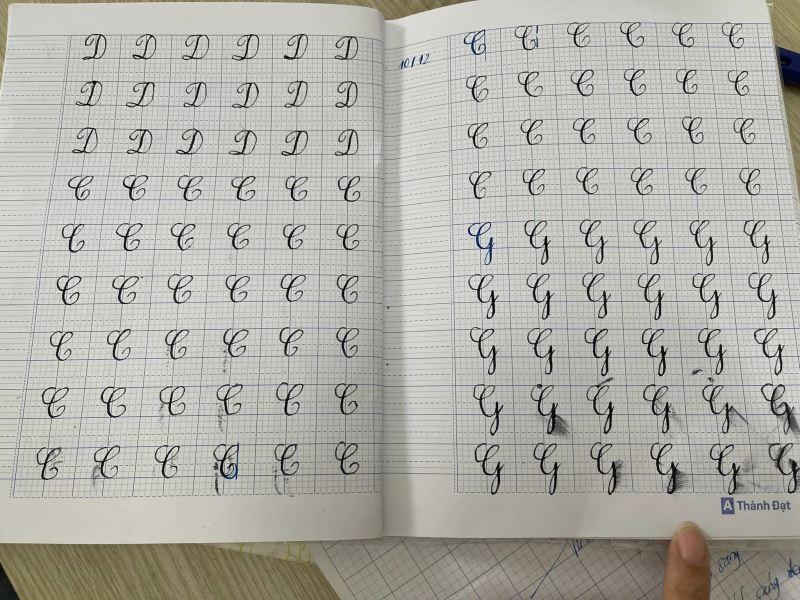 D D D D D D
D D D D D D
D D D D D D
C C C C C C
C C C C C C
C C C C C C
C C C C C C
C C C C C C
C C C C C C
10/12
C C C C C C
C C C C C C
C C C C C C
C C C C C C
G G G G G G
G G G G G G
G G G G G G
G G G G G G
G G G G G G
Thành Đạt